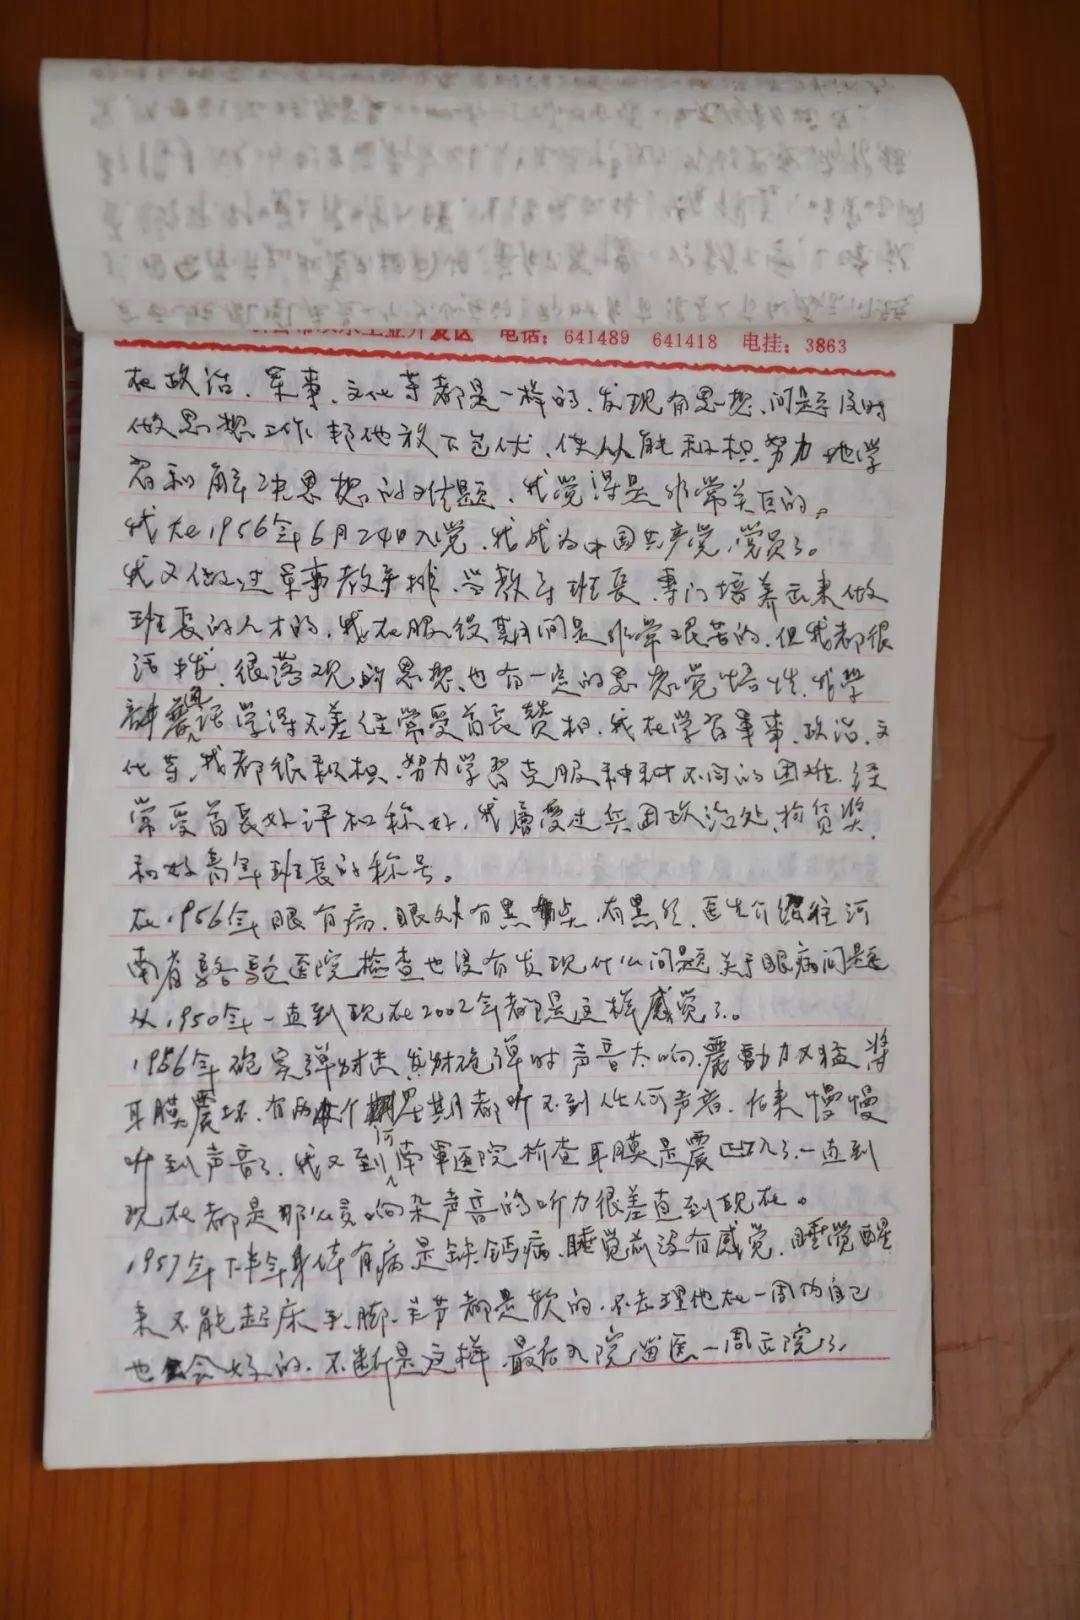 工业开发区 电话：641489 641418 电挂：3863
在政治、军事、文化等都是一样的、发现有思想、问题及时
做思想工作 帮他放下包伏、使 能积极努力地学
习和解决思想的难题、我觉得是非常关巨的。
我在1956年6月24日入党、我成为中国共产党、党员了。
我又做过军事教导排、当教导班长、专门培养出来做
班长的人才的、我在服役期间是非常艰苦的、但我都很
活 、很落观的思想、也有一定的思想觉悟性、
语学得不差经常受首长赞相、我在学习军事、政治、文
化等、我都很积极、努力学习克服种种不同的困难、经
常受首长好评和称好、我层受过兵团政治处、 奖、
和好青年班长的称号。
在1956年眼有病、眼 有黑点、有黑 、医生介绍往河
南省 医院检查也没有发现什么问题 关于眼病问题
从1950年一直到现在2002年都是这样感觉了。
1956年砲实弹射击、发射砲弹时声音太响、震动力又猛 将
耳膜震坏、有两个星期都听不到任何声音、后来慢慢
听到声音了、我又到河南军医院检查耳膜是震凹入了、一直到
现在都是那么 响杂声音的听力很差直到现在。
1957年下半年身体有病是缺钙病、睡觉前没有感觉、睡觉醒
来不能起床手、脚、关节都是软的、不去理他在一周内自己
也会好的、不断是这样、最后入院留医一周出院了、